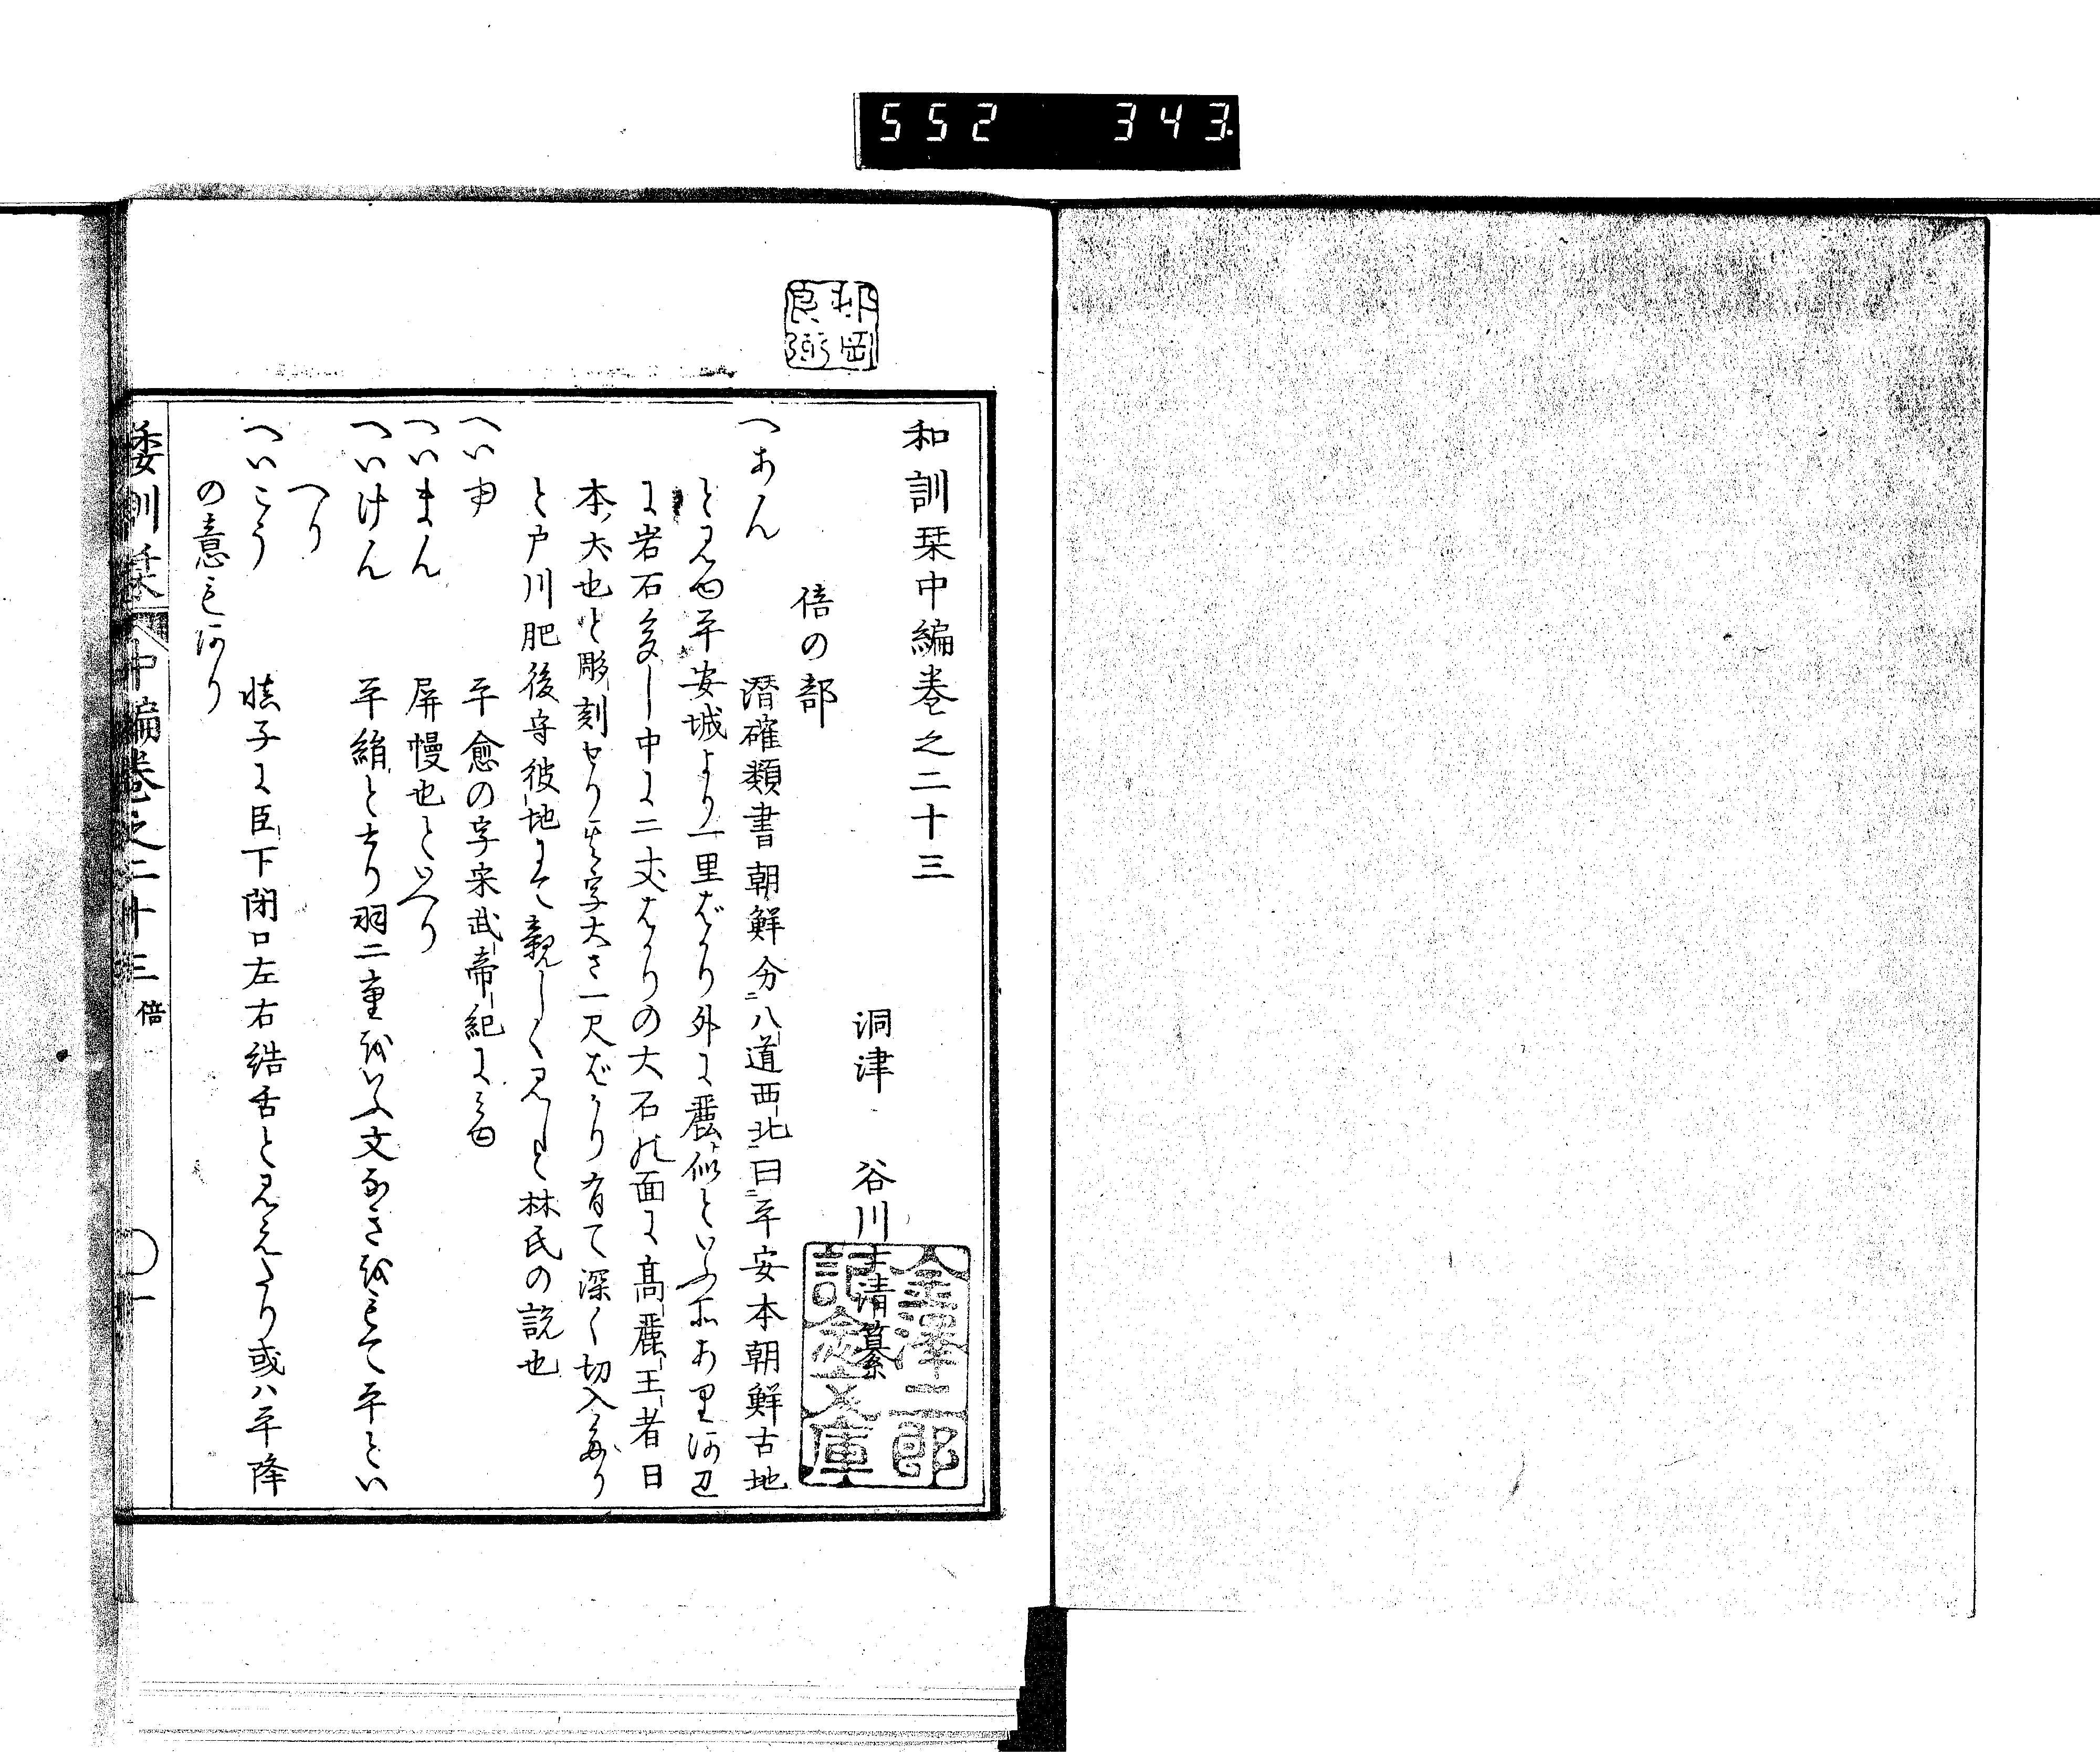 552 343
和訓栞中編巻之二十三
洞津 谷川士清纂
倍の部
へあん 潜確類書朝鮮分ニ八道西北曰ニ平安本朝鮮古地
と見ゆ平安城より一里ばかり外に麗似といふ所あり河辺
に岩石多し中に二丈はかりの大石の面に高麗王者日
本犬也と彫刻せり其字大さ一尺ばかり有て深く切入たり
と戸川肥後守彼地にて親しく見しと林氏の説也
へいゆ 平愈の字宋武帝紀に見ゆ
へいまん 屏幔也といへり
へいけん 平絹と書り羽二重をいふ文なきをもて平とい
へり
へいこう 慎子に臣下閉口左右結舌と見えたり或ハ平降
の意も河り
倭訓栞 中編巻之二十三 倍 一
金澤二郎
記念文庫
良弼